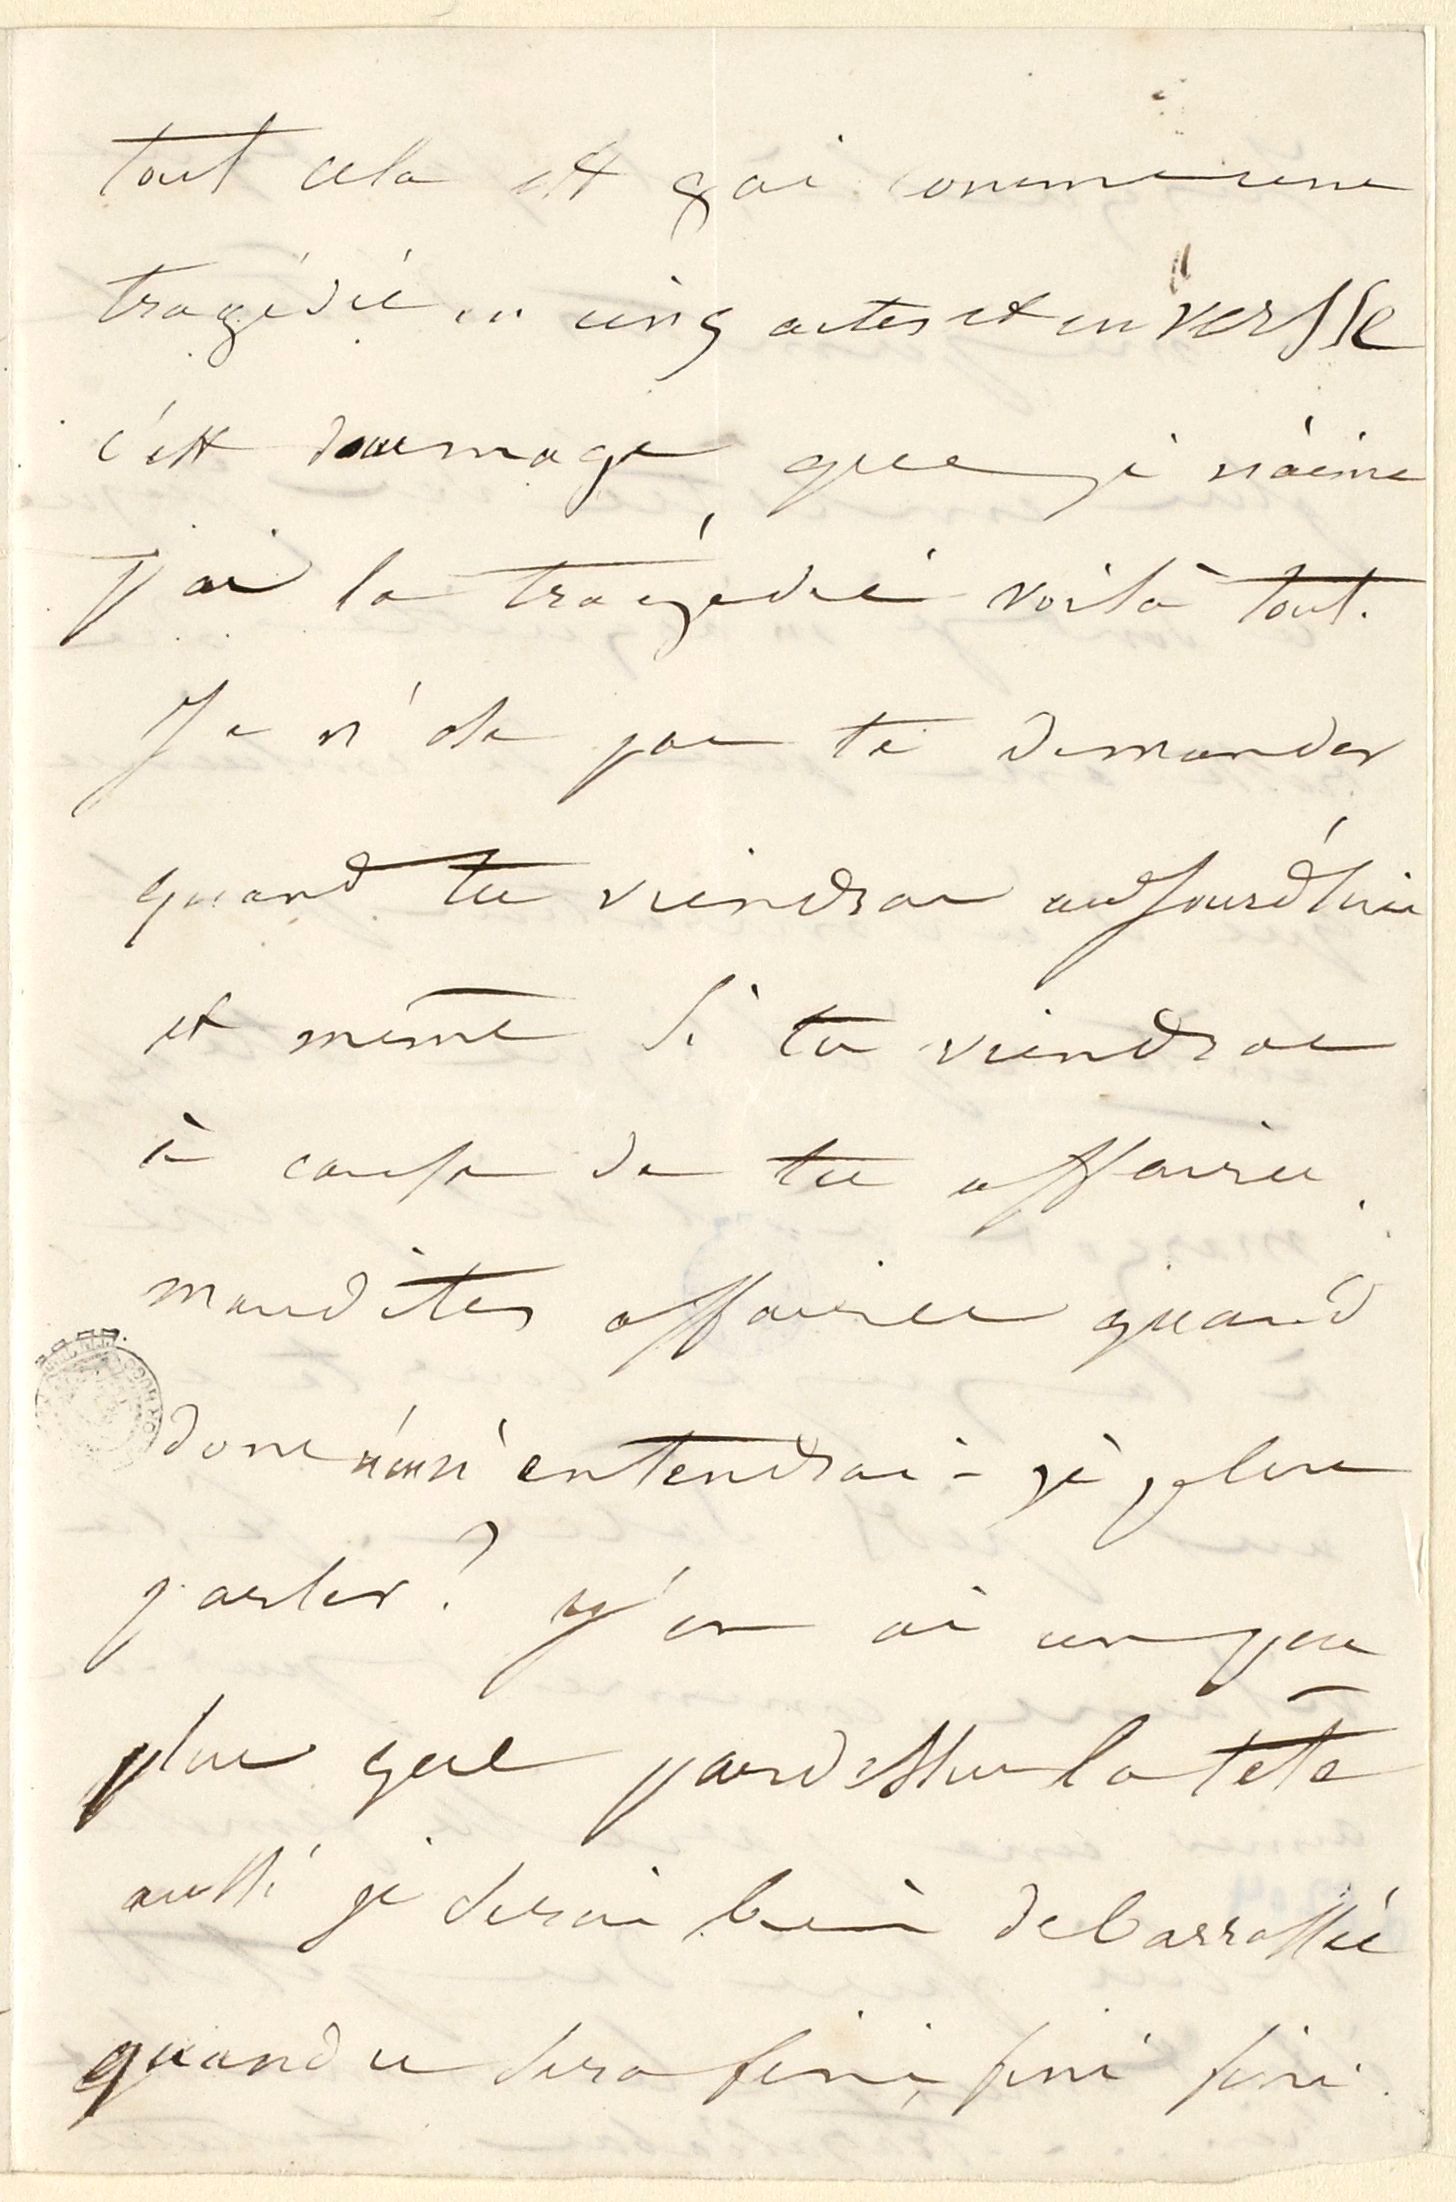 tout cela est gai comme une
tragédie en cinq actes et en versse
c'est dommage que je n'aime
pas la tragédie voilà tout.
Je n'ose pas te demander
quand tu viendras aujourd'hui
et même si tu viendras
à cause de tes affaires.
maudites affaires quand
donc n'en entendrai-je plus
parler ? J'en ai un peu
plus que pardessus la tête
aussi je serai bien debarrassée
quand ce sera fini, fini fini.